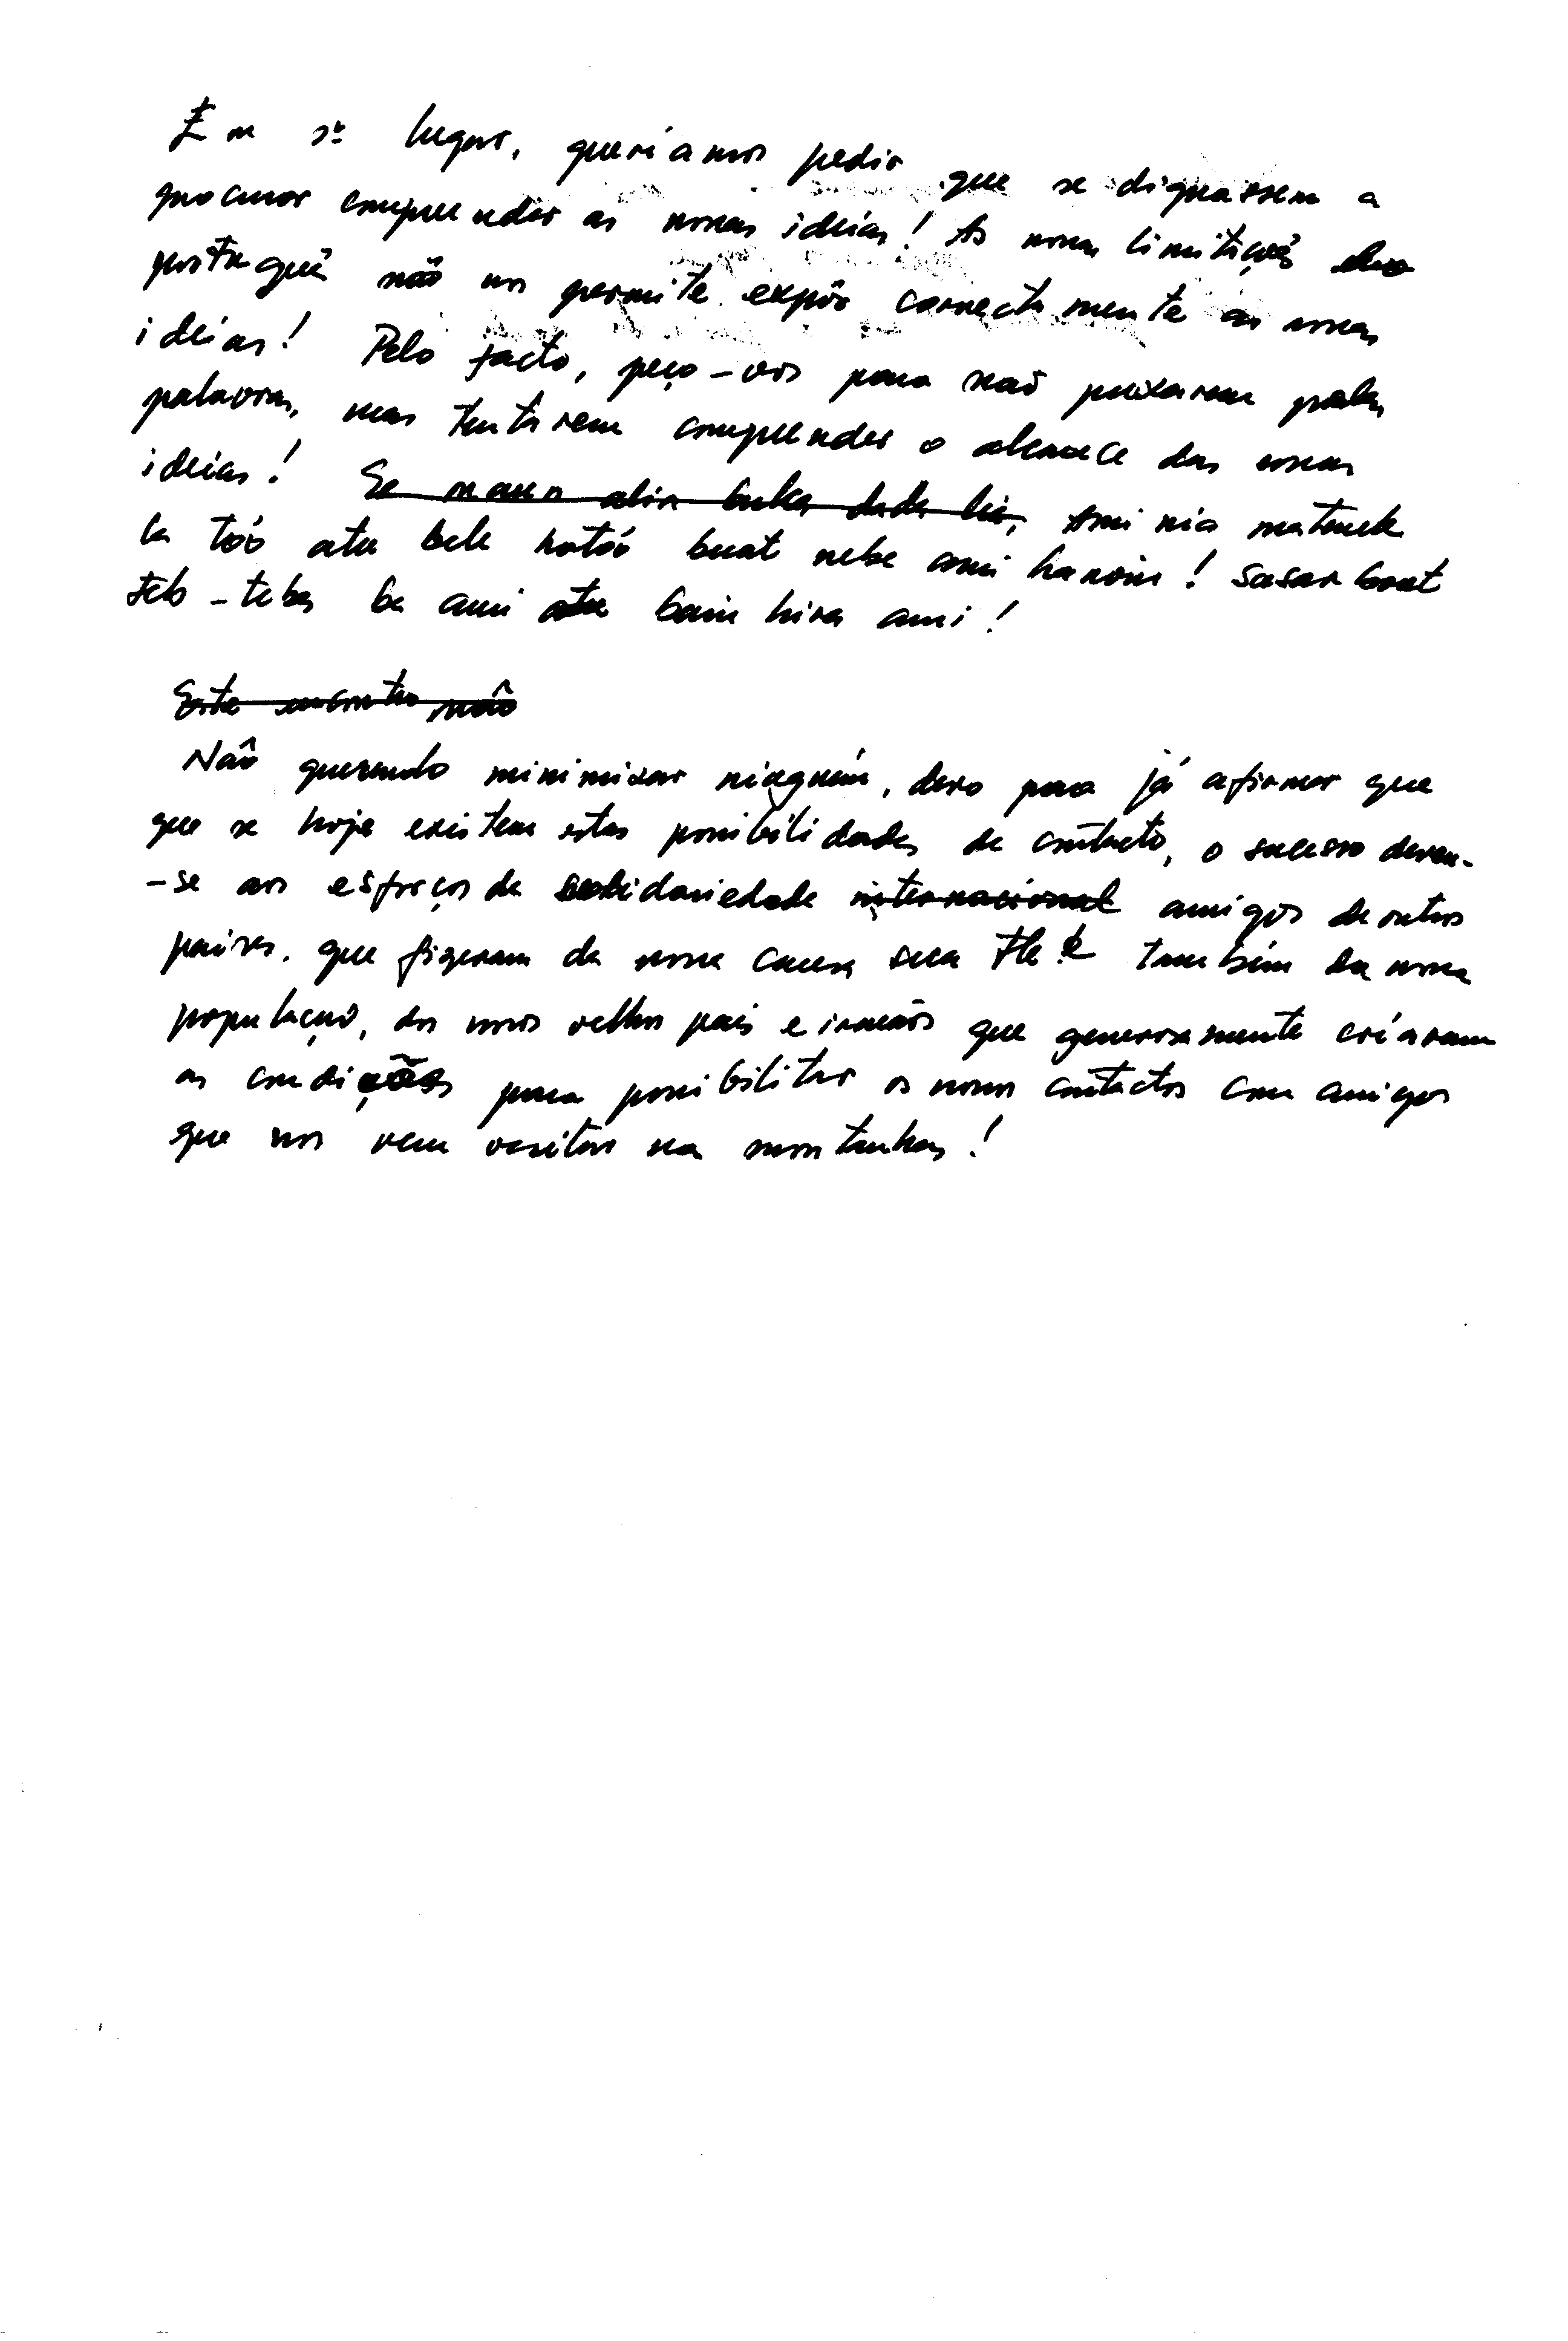 Em 1º lugar, queríamos pedir que se dignassem a
procurar compreender as nossas ideias! As nossas limitações do
português não nos permite expôr correctamente as nossas
ideias! Pelo facto, peço-vos para não puxarem pelas
palavras, mas tentarem compreender o alcance das nossas
ideias! Ami nia matenek
la too atu bele hatóo buat nebe ami hanoin! Sasar boot
tebes ba ami bain hira ami!
Este encontro não
Não querendo minimizar ninguém, devo para já afirmar que
que se hoje existem estas possibilidades de contacto, o sucesso devem-
-se aos esforços de solidariedade internacional amigos de outros
países, que fizeram da nossa causa sua também da nossa
população, dos nossos velhos pais e irmãos que generosamente criaram
as condições para possibilitar os nossos contactos com amigos
que nos vem visitar na montanhas!